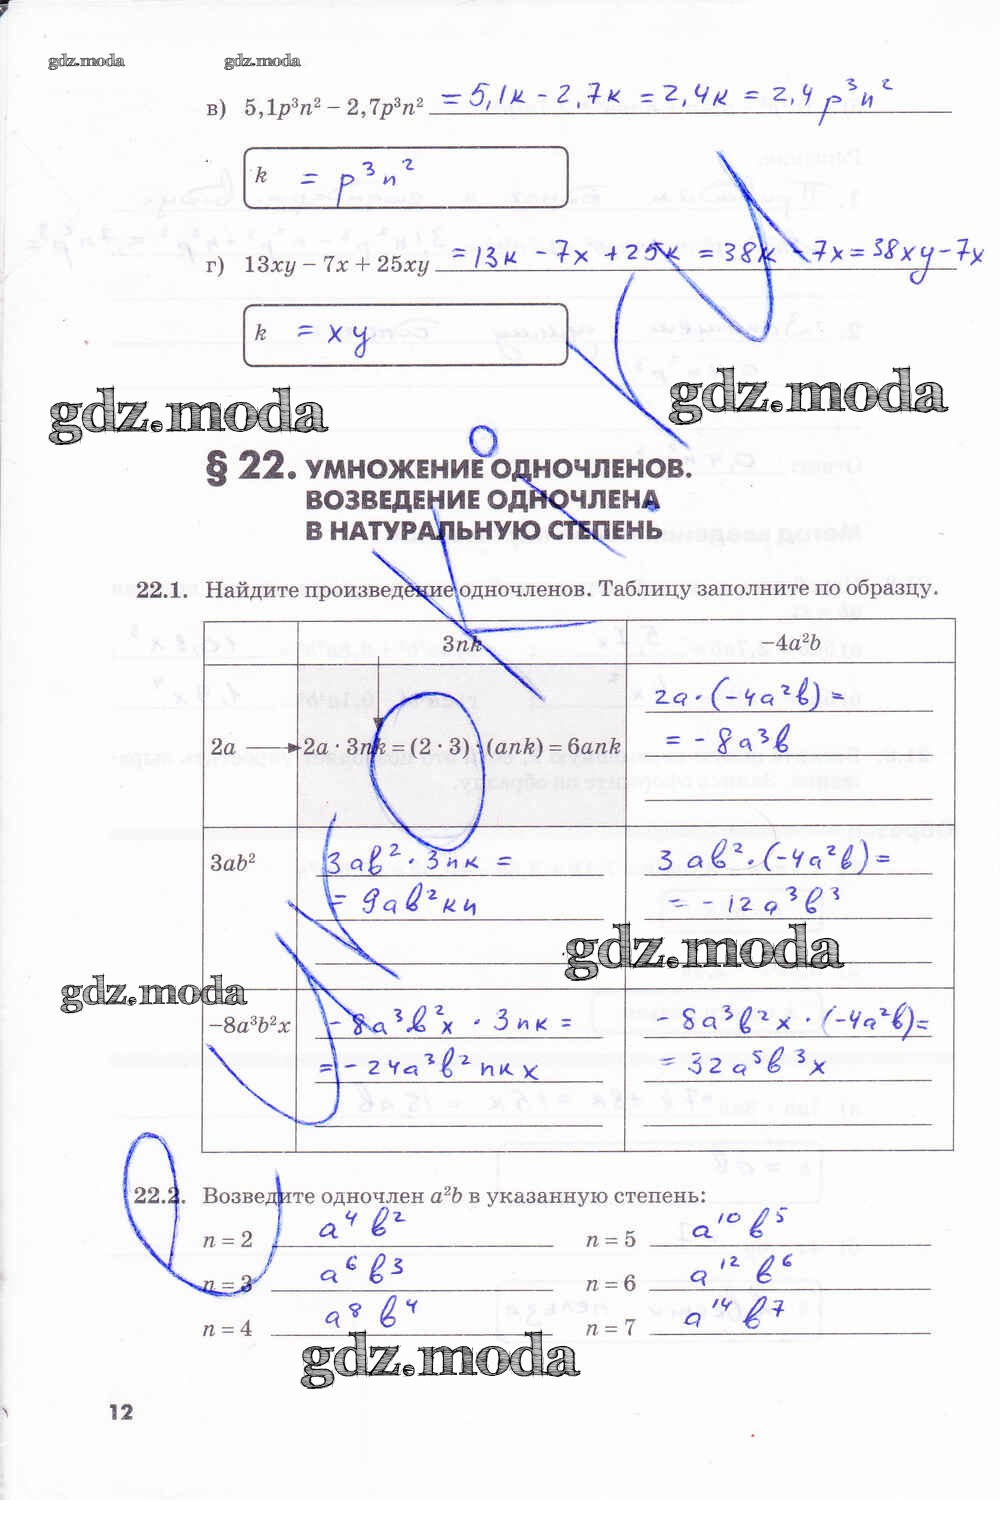 gdz.moda gdz.moda
в) 5,1p³n² – 2,7p³n² = 5,1к – 2,7к = 2,4к = 2,4 p³n²
k = p³n²
г) 13xy – 7x + 25xy = 13к – 7x + 25к = 38к – 7x = 38xy – 7x
k = xy
gdz.moda gdz.moda
§ 22. УМНОЖЕНИЕ ОДНОЧЛЕНОВ.
ВОЗВЕДЕНИЕ ОДНОЧЛЕНА
В НАТУРАЛЬНУЮ СТЕПЕНЬ
22.1. Найдите произведение одночленов. Таблицу заполните по образцу.
3nk –4a²b
2a · (–4a²b) =
2a 2a · 3nk = (2 · 3) · (ank) = 6ank = – 8a³b
3ab² 3ab² · 3nк = 3ab² · (–4a²b) =
= 9ab²кn = – 12a³b³
gdz.moda
gdz.moda
–8a³b²x – 8a³b²x · 3nк = – 8a³b²x · (–4a²b) =
= – 24a³b²nкx = 32a⁵b³x
22.2. Возведите одночлен a²b в указанную степень:
n = 2 a⁴b² n = 5 a¹⁰b⁵
n = 3 a⁶b³ n = 6 a¹²b⁶
n = 4 a⁸b⁴ n = 7 a¹⁴b⁷
gdz.moda
12